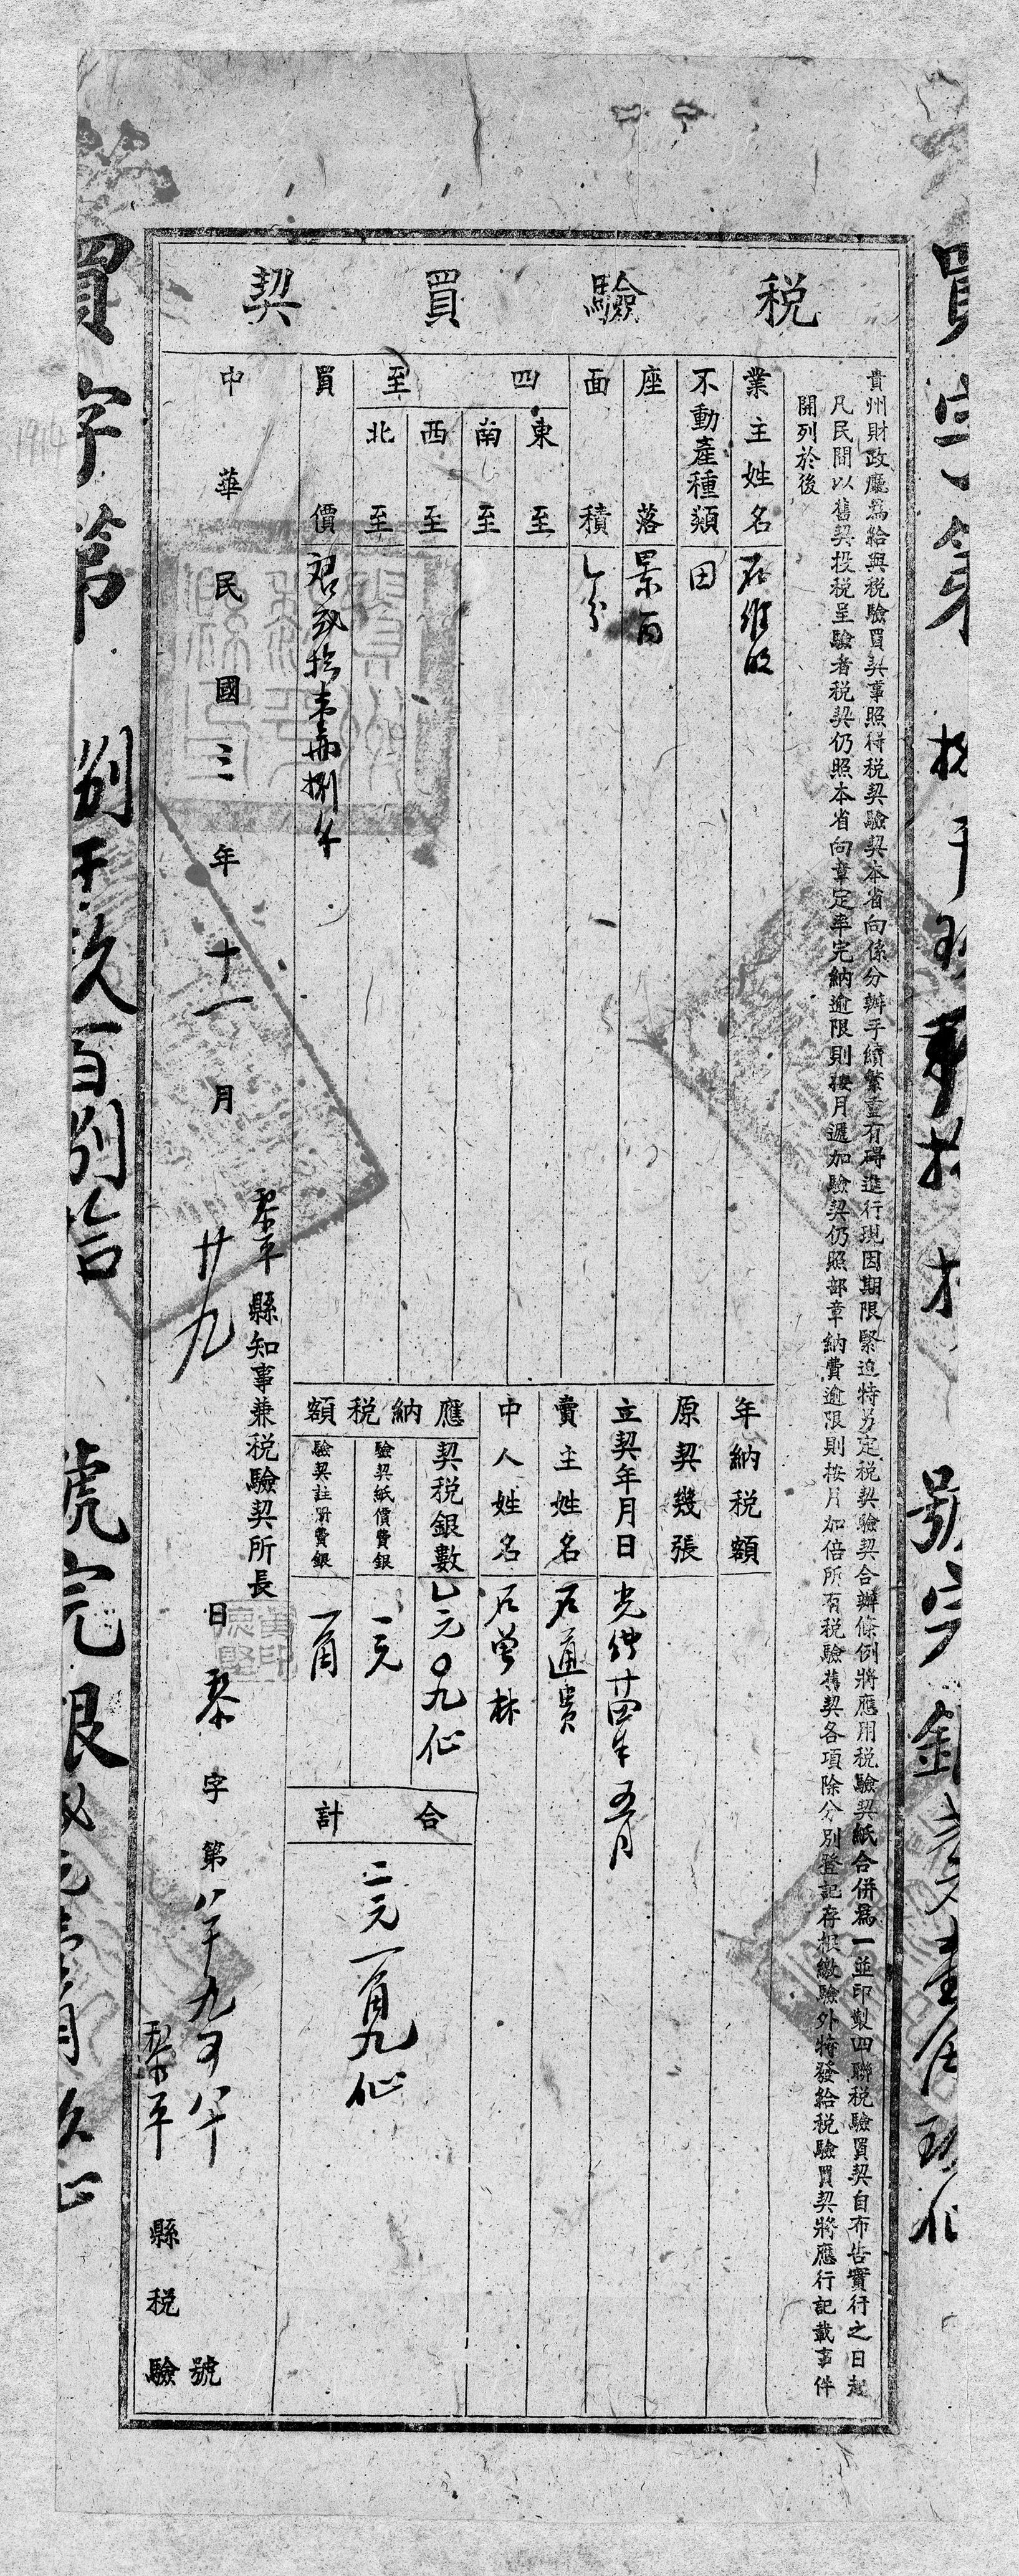 稅驗買契
貴州財政廳爲給與稅驗買契事照得稅契驗契本省向係分辦手續繁重有碍進行現因期限緊迫特另定稅契驗契合辦條例將應用稅驗契紙合併爲一並印製四聯稅驗買契自布告實行之日起
凡民間以舊契投稅呈驗者稅契仍照本省向章定率完納逾限則按月遞加驗契仍照部章納費逾限則按月加倍所有稅驗舊契各項除分別登記存根繳驗外特發給稅驗買契將應行記載事件
開列於後
業主姓名 石維
不動產種類 田
座落 景
面積
四至
東至
南至
西至
北至
買價 拾 兩捌
年納稅額
原契幾張
立契年月日 光緒廿四年五月
賣主姓名 石道貴
中人姓名 石曾林
應納稅額
契稅銀數 乙元〇九仙
驗契紙價費銀 一元
驗契註冊費銀 一角
合計
二元一角九仙
中華民國三年十一月廿九日
黎平縣知事兼稅驗契所長
黎字第八千九百八十號
黎平縣稅驗
買字第捌千玖百捌拾號完銀
1914